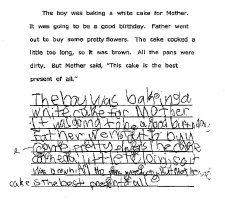 The boy was baking a white cake for Mother.
It was going to be a good birthday. Father went
out to buy some pretty flowers. The cake cooked a
little too long, so it was brown. All the pans were
dirty. But Mother said, "This cake is the best
present of all."
The boy was baking a
white cake for Mother
It was going to be a good birthday.
Father went to buy
some pretty flowers The cake
cooked a little too long so it
was brown. All the pans were
cake is the best present of all